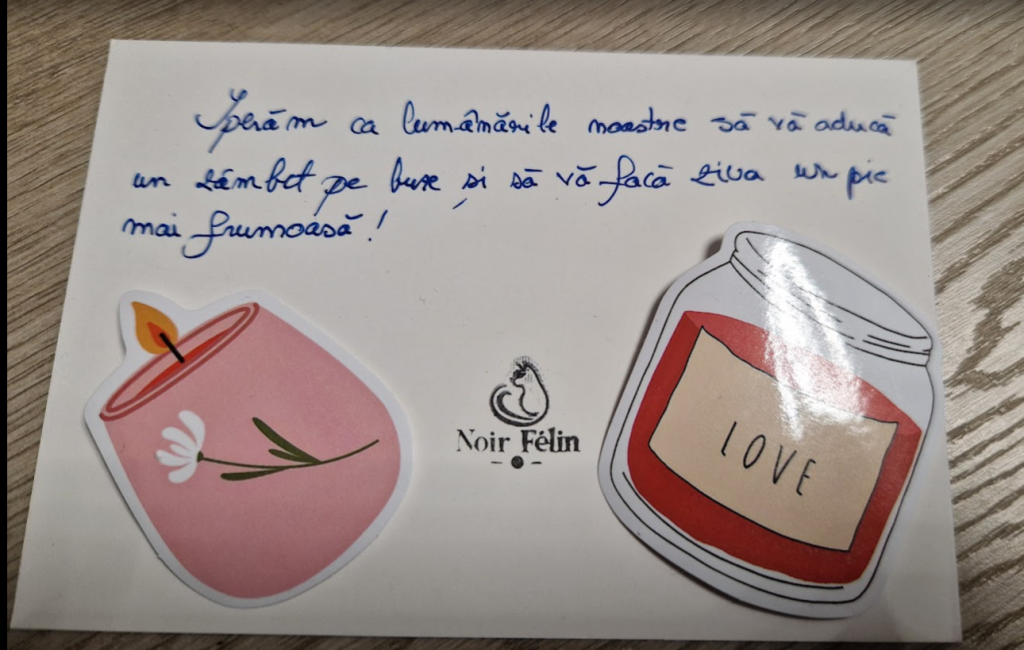 Sperăm ca lumânările noastre să vă aducă
un zâmbet pe buze și să vă facă ziua un pic
mai frumoasă!
Noir Félin
LOVE